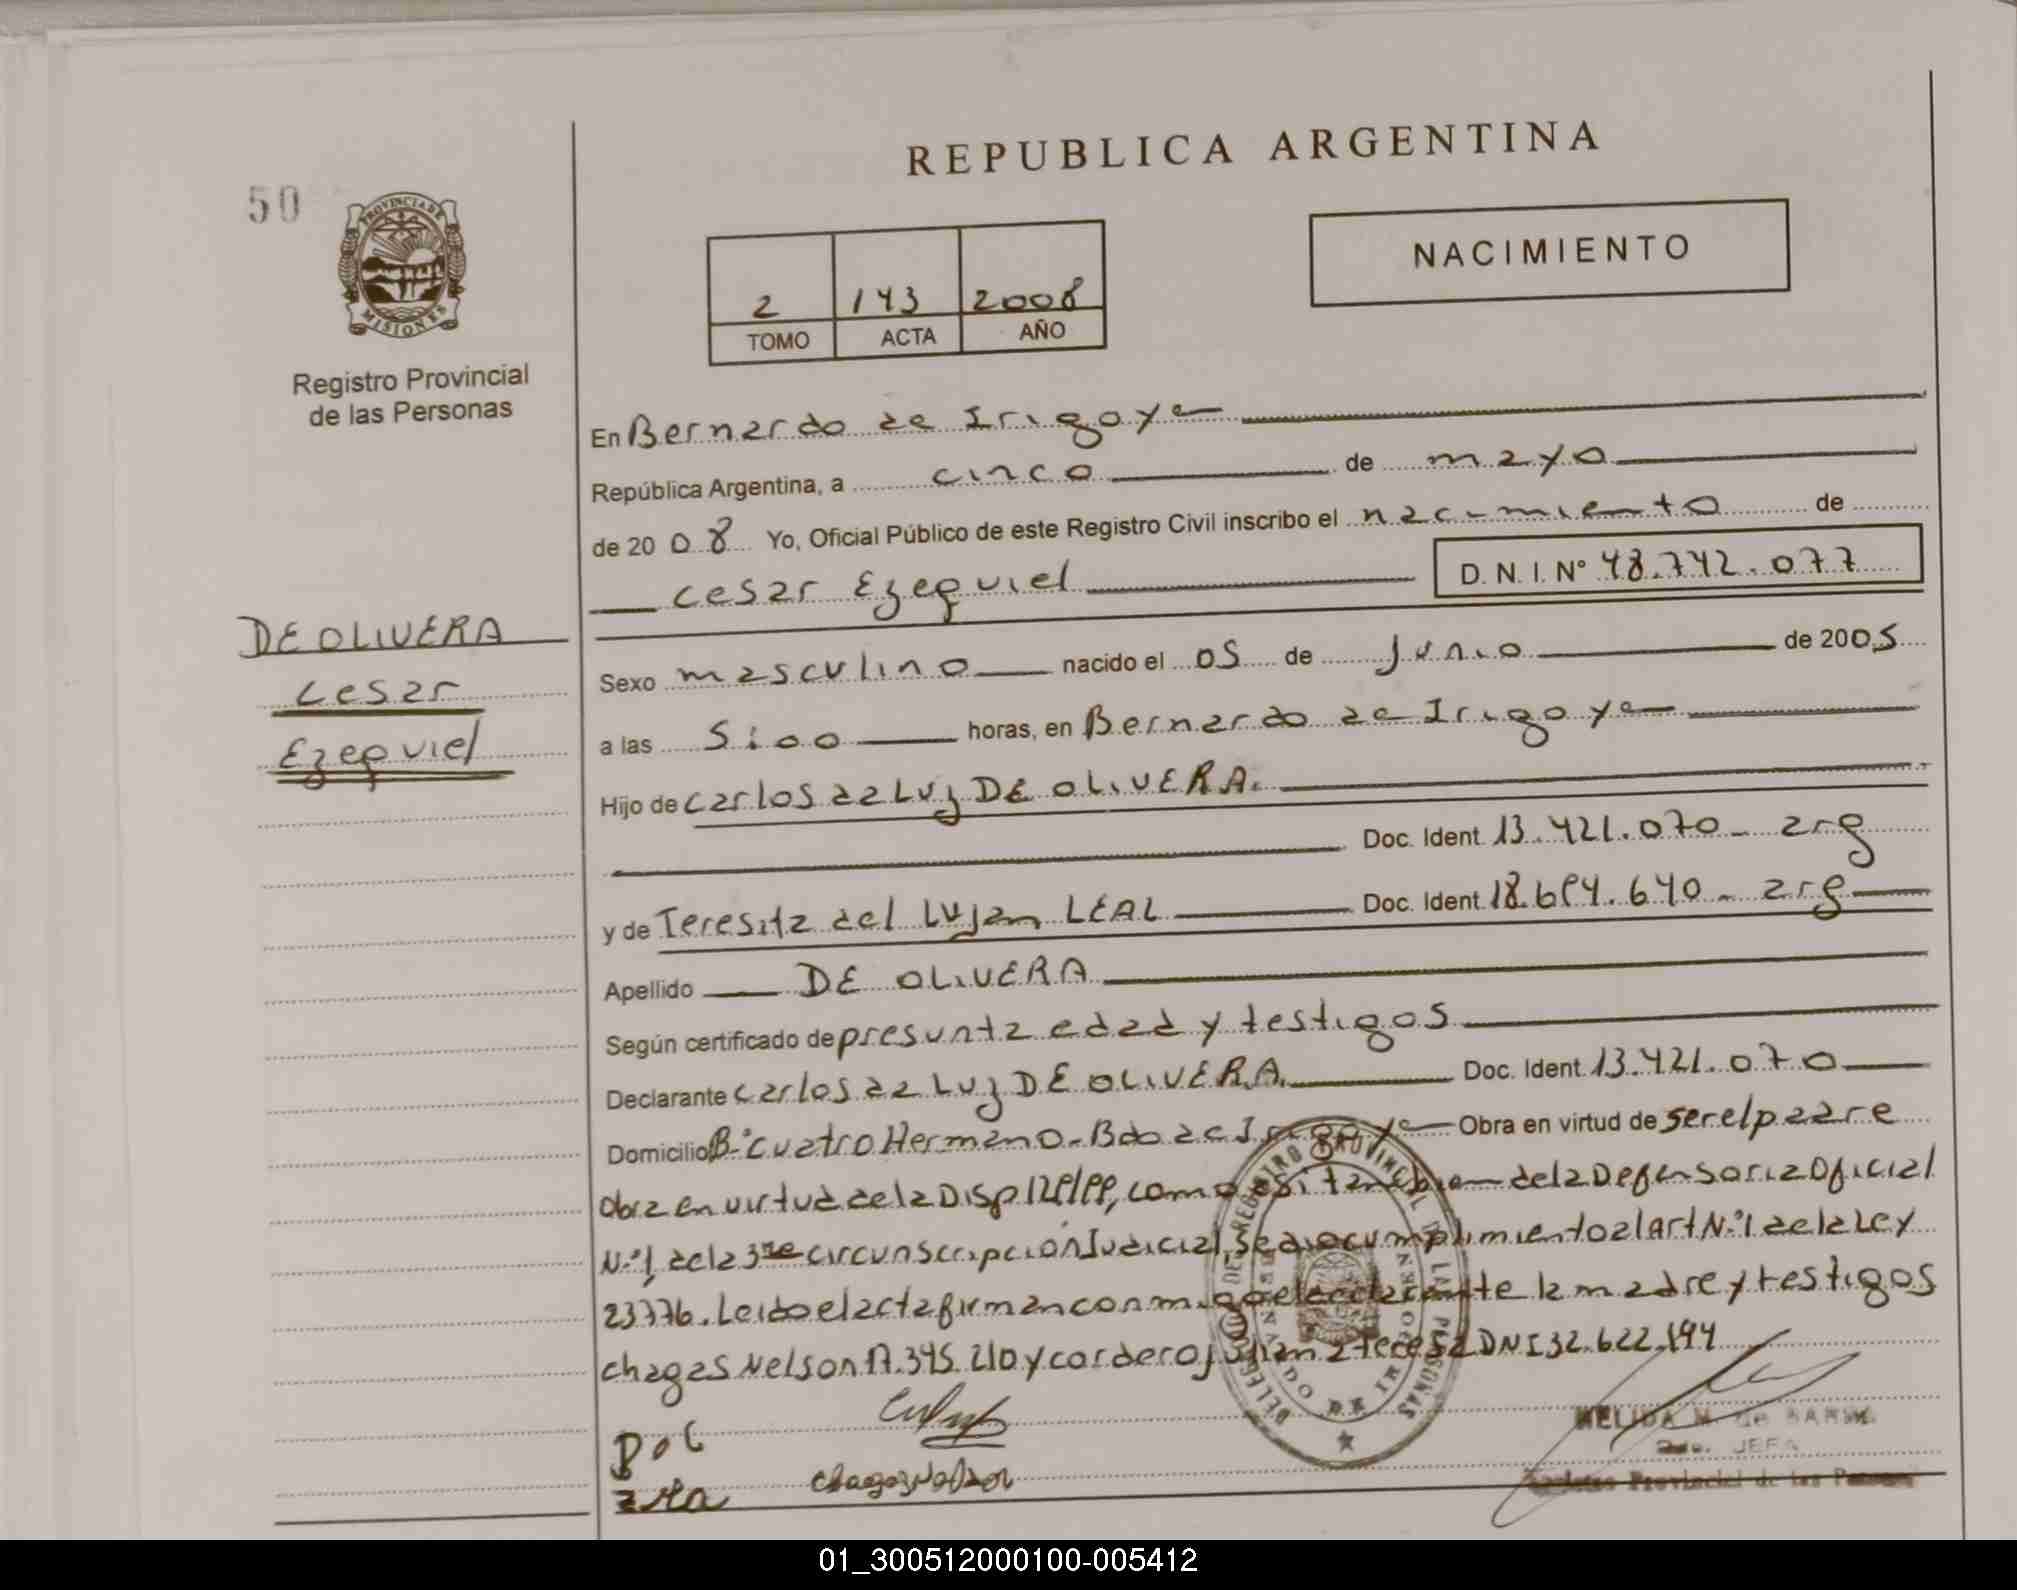 REPUBLICA ARGENTINA
50
PROVINCIA DE MISIONES
Registro Provincial
de las Personas
NACIMIENTO
2 143 2008
TOMO ACTA AÑO
En Bernardo de Irigoye
República Argentina, a cinco de mayo
de 2008 Yo, Oficial Público de este Registro Civil inscribo el nacimiento de
Cesar Ezequiel D. N. I. N° 48.742.077
DE OLIVERA
Cesar
Ezequiel
Sexo masculino nacido el 05 de Junio de 2005
a las 5:00 horas, en Bernardo de Irigoye
Hijo de Carlos da Luz DE OLIVERA.
Doc. Ident. 13.421.070 - arg
y de Teresita del Lujan LEAL Doc. Ident. 18.6 4.640 - arg
Apellido DE OLIVERA
Según certificado de presunta edad y testigos
Declarante Carlos da Luz DE OLIVERA. Doc. Ident. 13.421.070
Domicilio B° Cuatro Hermano - Bdo de Irigoye Obra en virtud de ser el padre
Obra en virtud de la Disp como asi tambien de la Defensoria Oficial
N° 1, de la 3ra circunscripción Judicial, se dio cumplimiento al Art N° 1 de la Ley
23776. Leido el acta firman conmigo el declarante la madre y testigos
Chagas Nelson 17.345.210 y Cordero Juliana Teresa DNI 32.622.194
DELEG REGISTRO PROVINCIAL DE LAS PERSONAS
BERNARDO DE IRIGOYEN
MELIDA M. de
JEFA
Registro Provincial de las Personas
01_300512000100-005412